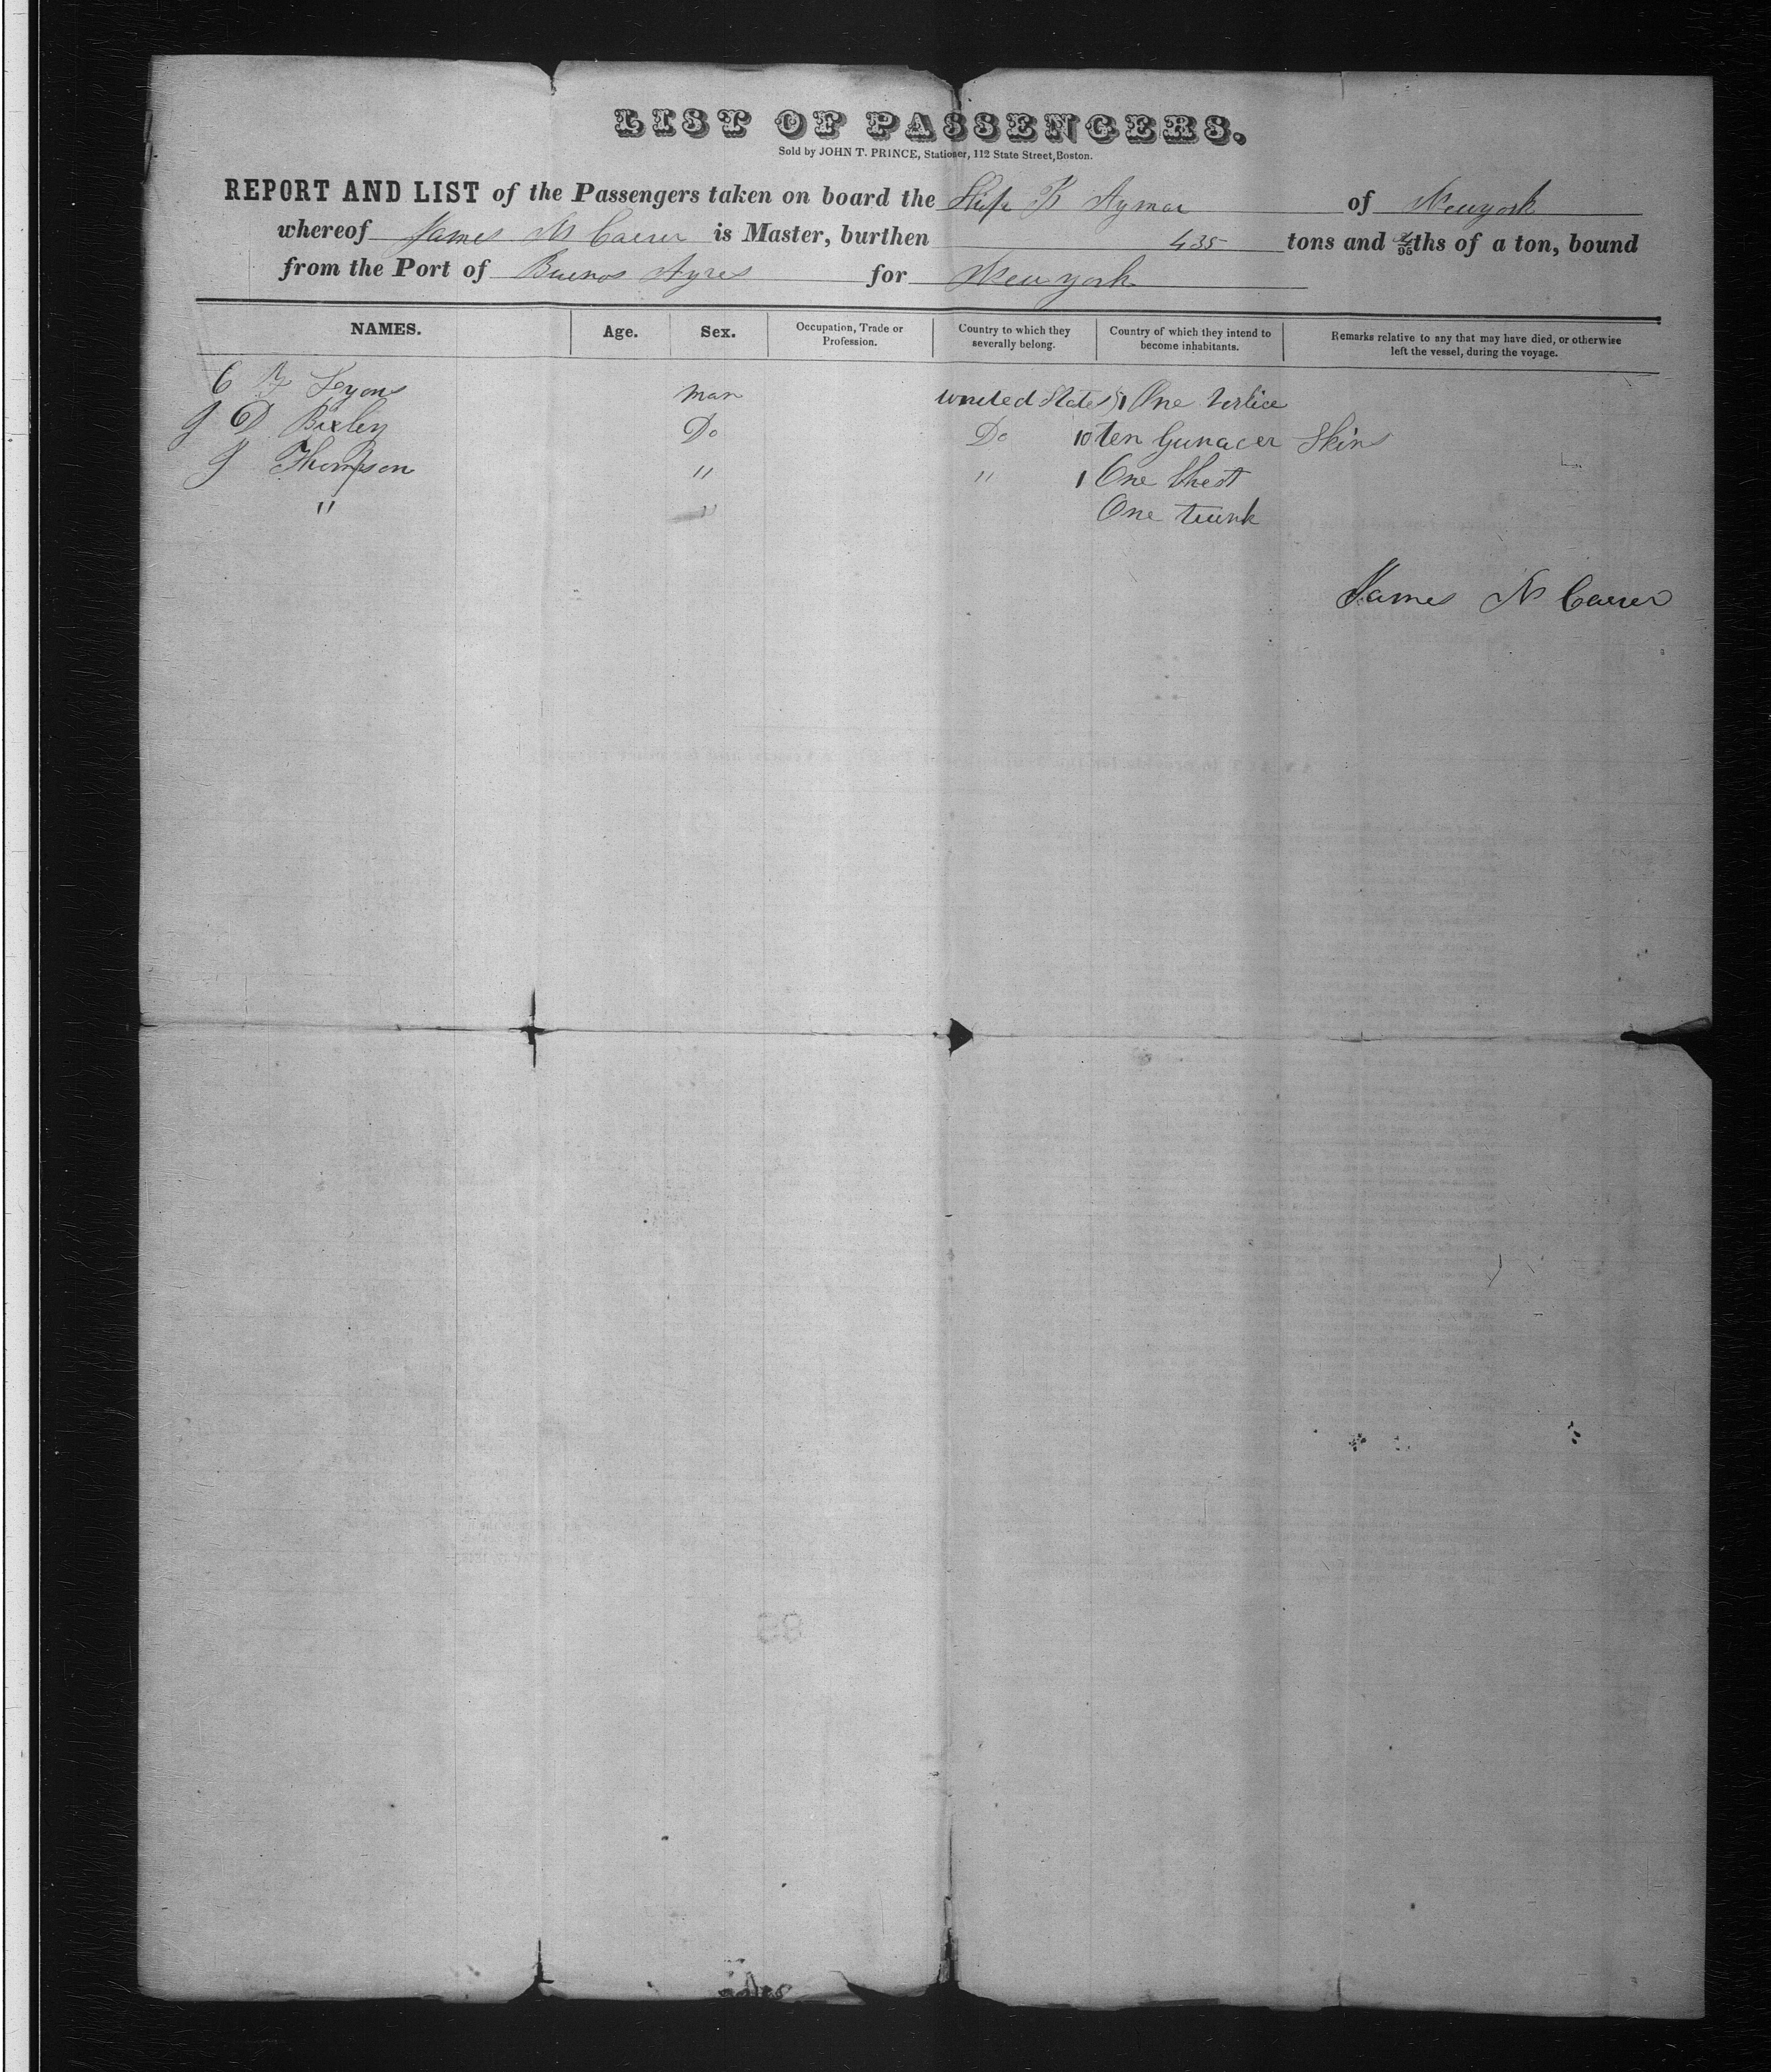 LIST OF PASSENGERS.
Sold by JOHN T. PRINCE, Stationer, 112 State Street, Boston.
REPORT AND LIST of the Passengers taken on board the Ship B Aymar of Newyork
whereof James N Carver is Master, burthen 435 tons and /95ths of a ton, bound
from the Port of Buenos Ayres for New york
NAMES. Age. Sex. Occupation, Trade or Profession. Country to which they severally belong. Country of which they intend to become inhabitants. Remarks relative to any that may have died, or otherwise left the vessel, during the voyage.
C Lyons man united States 1 One
J D Bixley Do Do 10 ten Skins
J Thompson " " 1 One Chest
" " One trunk
James N Carver